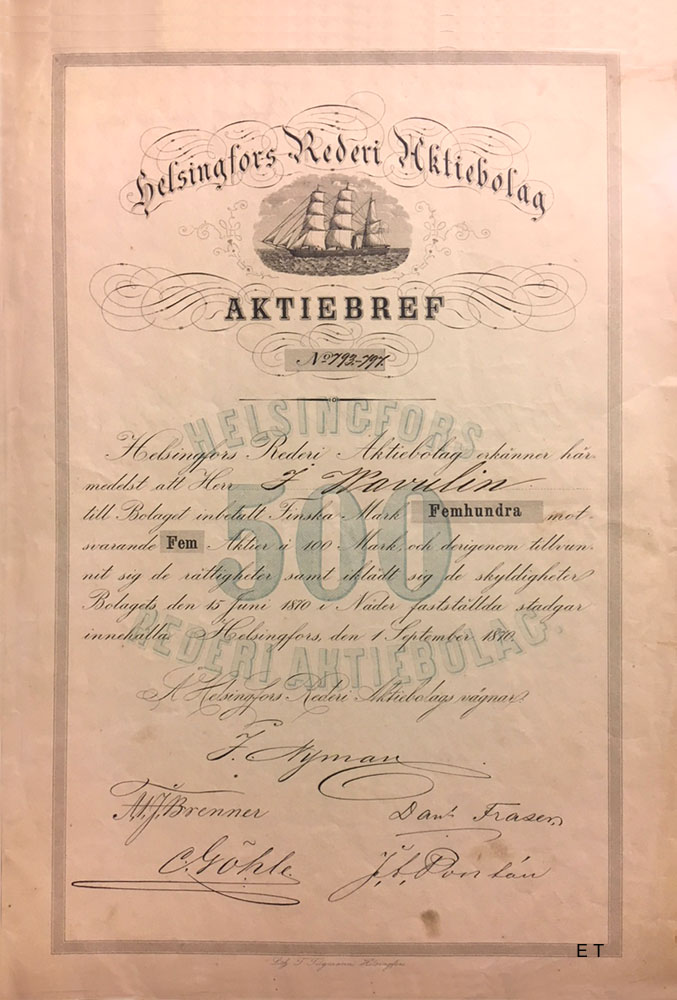 Helsingfors Rederi Aktiebolag
AKTIEBREF
No 793-797.
HELSINGFORS
Helsingfors Rederi Aktiebolag erkänner här-
medelst att Herr J Wavulin
till Bolaget inbetalt Finska Mark Femhundra mot-
svarande Fem Aktier à 100 Mark, och derigenom tillvun-
nit sig de rättigheter samt iklädt sig de skyldigheter
500
Bolagets den 15 Juni 1870 i Nåder fastställda stadgar
innehålla. Helsingfors, den 1 September 1870.
REDERI AKTIEBOLAG.
Å Helsingfors Rederi Aktiebolags vägnar:
F. Nyman
Brenner
Danl Fraser
C. Göhle
E T